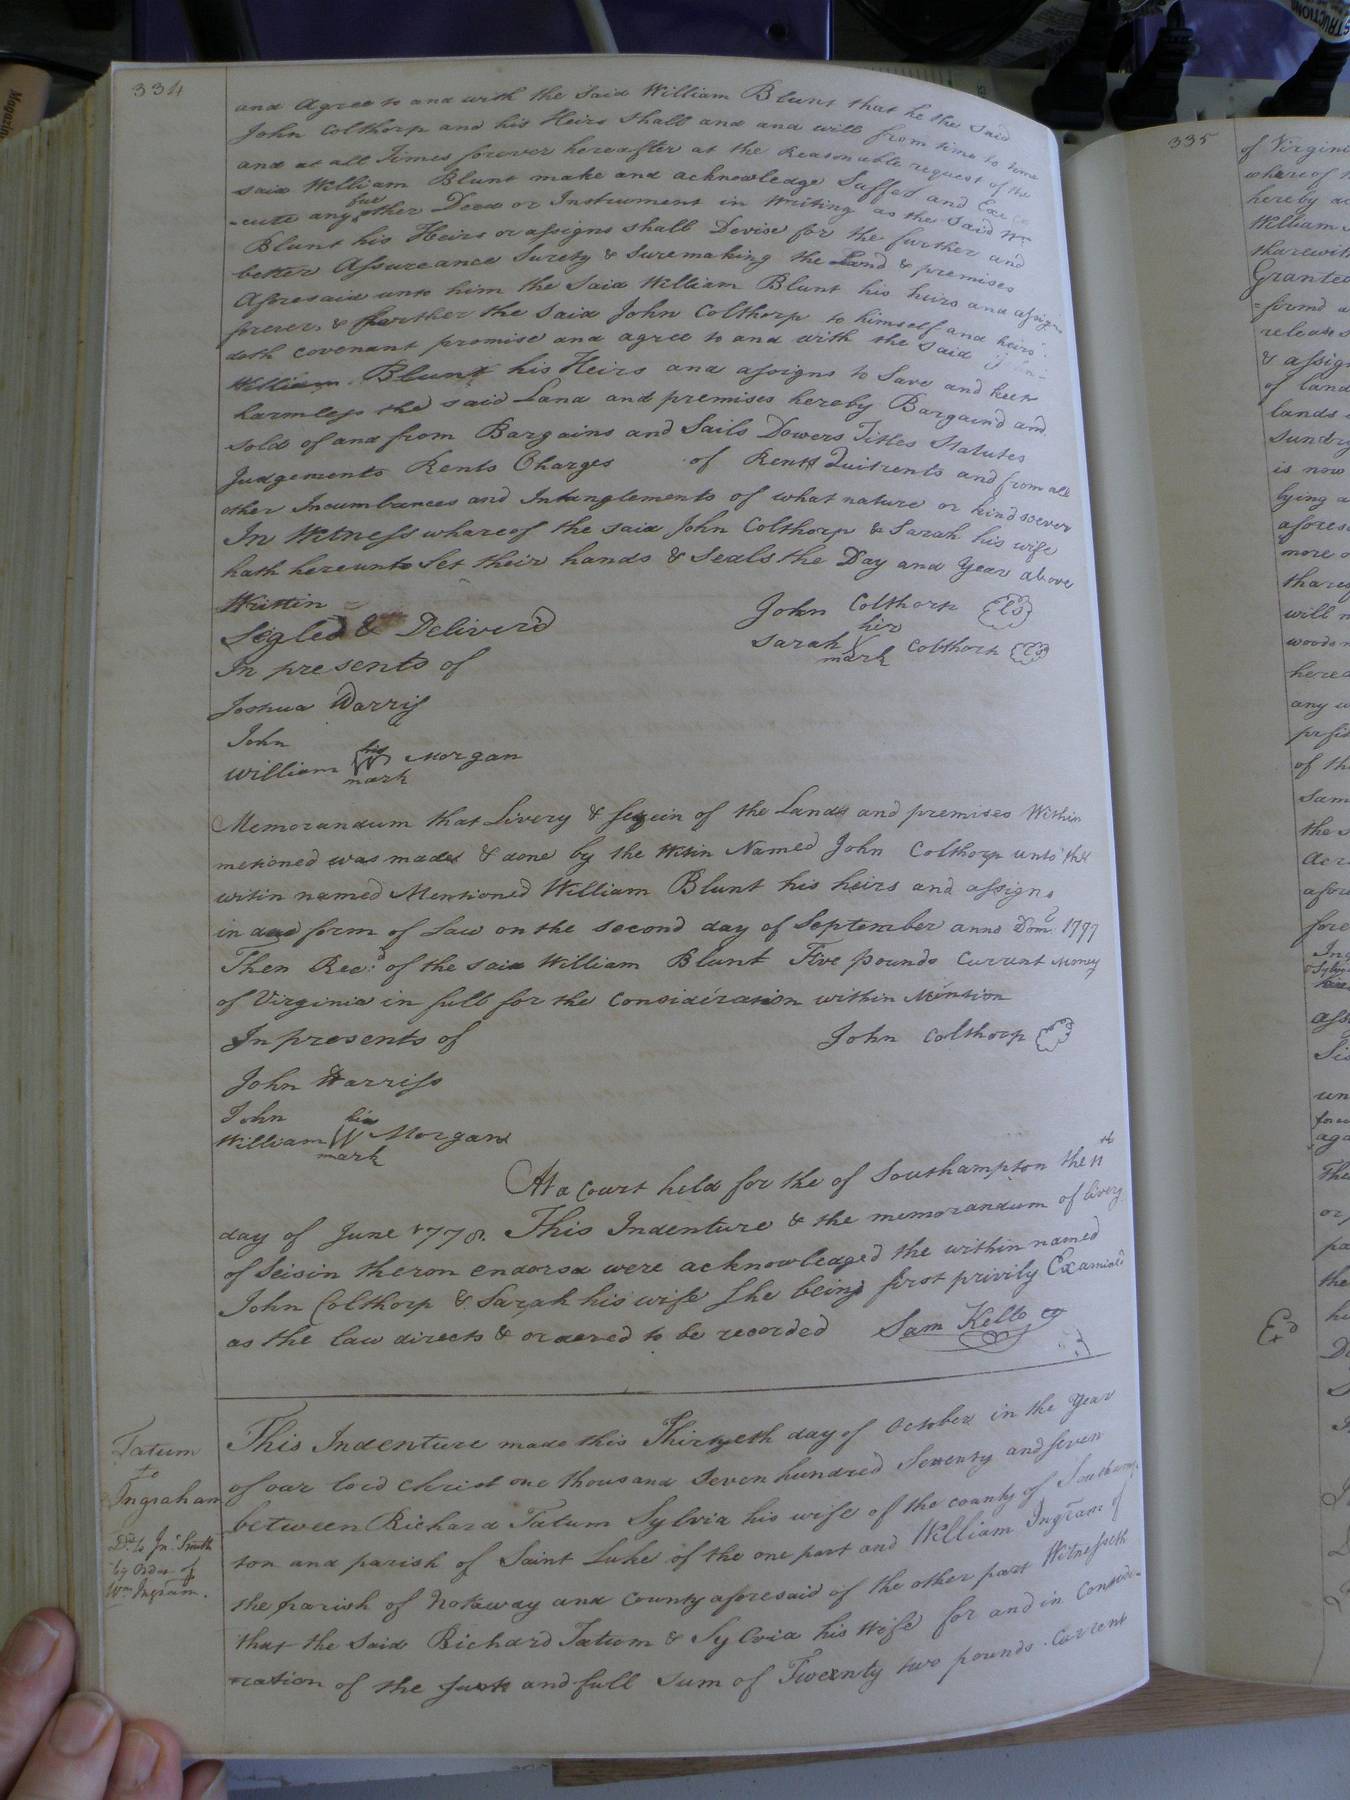 334
and Agree to and with the said William Blunt that he the said
John Colthorp and his Heirs Shall and and will from time to time
and at all Times forever hereafter at the Reasonable request of the
said William Blunt make and acknowledge Suffer and Exe
-cute any other Deed or Instrument in Writing as the said Wm
Blunt his Heirs or assigns shall Devise for the further and
better Assureance Surety & Suremaking the Land & premises
Aforesaid unto him the said William Blunt his heirs and assigns
forever, & further the said John Colthorp to himself and heirs
doth covenant promise and agree to and with the said
William Blunt his Heirs and assigns to Save and keep
harmless the said Land and premises hereby Bargain'd and
sold of and from Bargains and Sails Dowers Titles Statutes
Judgements Rents Charges of Rents Quitrents and from all
other Incumbrances and Intanglements of what nature or kind soever
In Witness whareof the said John Colthorp & Sarah his wife
hath hereunto Set their hands & Seals the Day and Year above
Written
John Colthorp LS
Sigled & Deliver'd
her
Sarah Colthorp LS
mark
In presents of
Joshua Harriss
John
William his Morgan
mark
Memorandum that Livery & seyein of the Lands and premises Within
metioned was made & done by the Witin Named John Colthorp unto the
witin named Mentioned William Blunt his heirs and assigns
in due form of Law on the second day of September anno Dom 1777
Then Rec:d of the said William Blunt Five pounds Currant Money
of Virginia in full for the Consideration within Mention
In presents of
John Colthorp
John Harriss
John
William his W Morgan
mark
At a Court held for the of Southampton the 11th
day of June 1778. This Indenture & the memorandum of livery
of Seisin theron endorsd were acknowleaged the within named
John Colthorp & Sarah his wife She being first privily Examined
as the law directs & ordered to be recorded Sam Kello
Tatum
to
Ingraham
Dd. to Jno. Smith
by Order of
Wm Ingram.
This Indenture made this Thirtyeth day of October in the Year
of our lord Christ one thousand Seven hundred Seventy and seven
between Richard Tatum Sylvia his wife of the county of Southamp
ton and parish of Saint Luke of the one part and William Ingram of
the parish of Notoway and County aforesaid of the other part Witnesseth
that the said Richard Tatum & Sylvia his Wife for and in Conside-
-ration of the just and full sum of Tweenty two pounds Current
335
of Virgini
whare of
hereby
William
tharewith
Grante
form'd
release
& assig
of land
lands
Sundry
is now
lying a
afores
more o
thare
will
woods
here
any
of th
Sam
the
afore
fore
un
the
or
pa
the
he